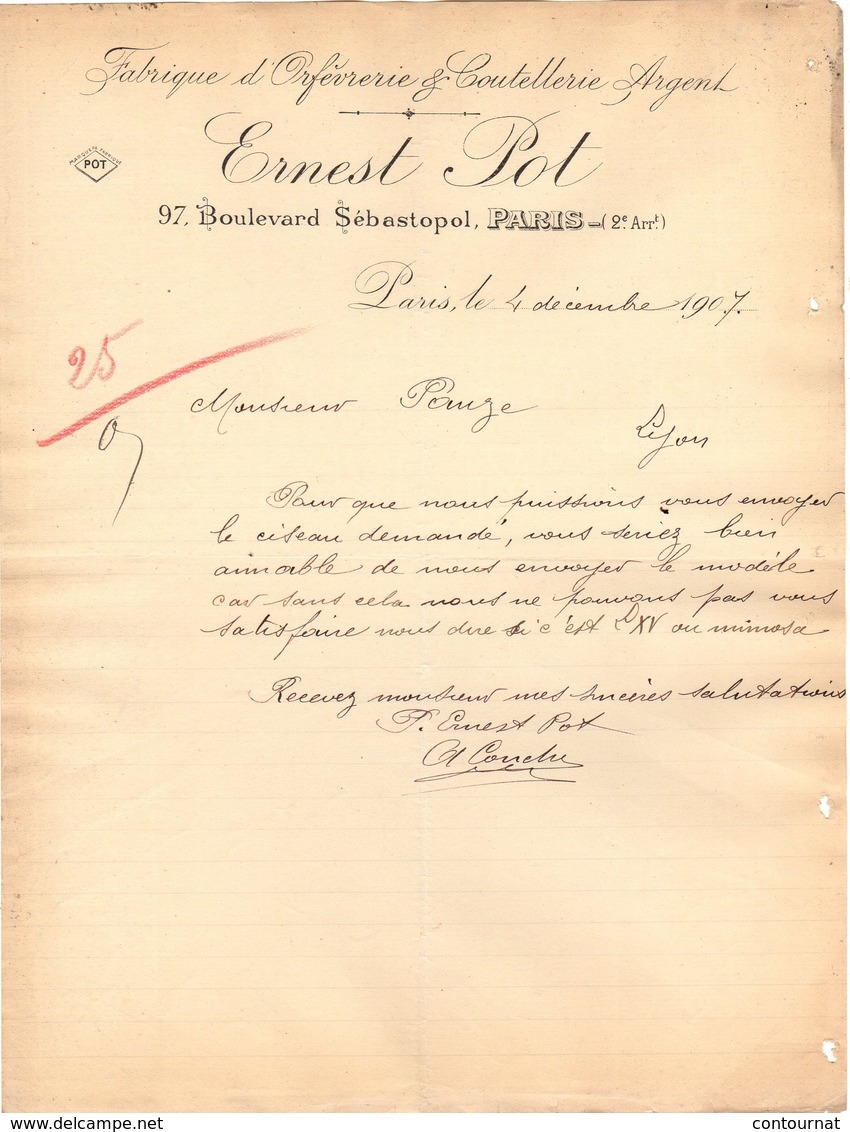 Fabrique d'Orfèvrerie & Coutellerie Argent
Ernest Pot
MARQUE DE FABRIQUE
POT
97, Boulevard Sébastopol, PARIS - (2e. Arrt.)
Paris, le 4 décembre 1907.
25
Monsieur Pauze
Lyon
Pour que nous puissions vous envoyer
le ciseau demandé, vous seriez bien
aimable de nous envoyer le modèle
car sans cela nous ne pouvons pas vous
satisfaire nous dire si c'est L XV ou mimosa
Recevez monsieur mes sincères salutations
P. Ernest Pot
www.delcampe.net
contournat